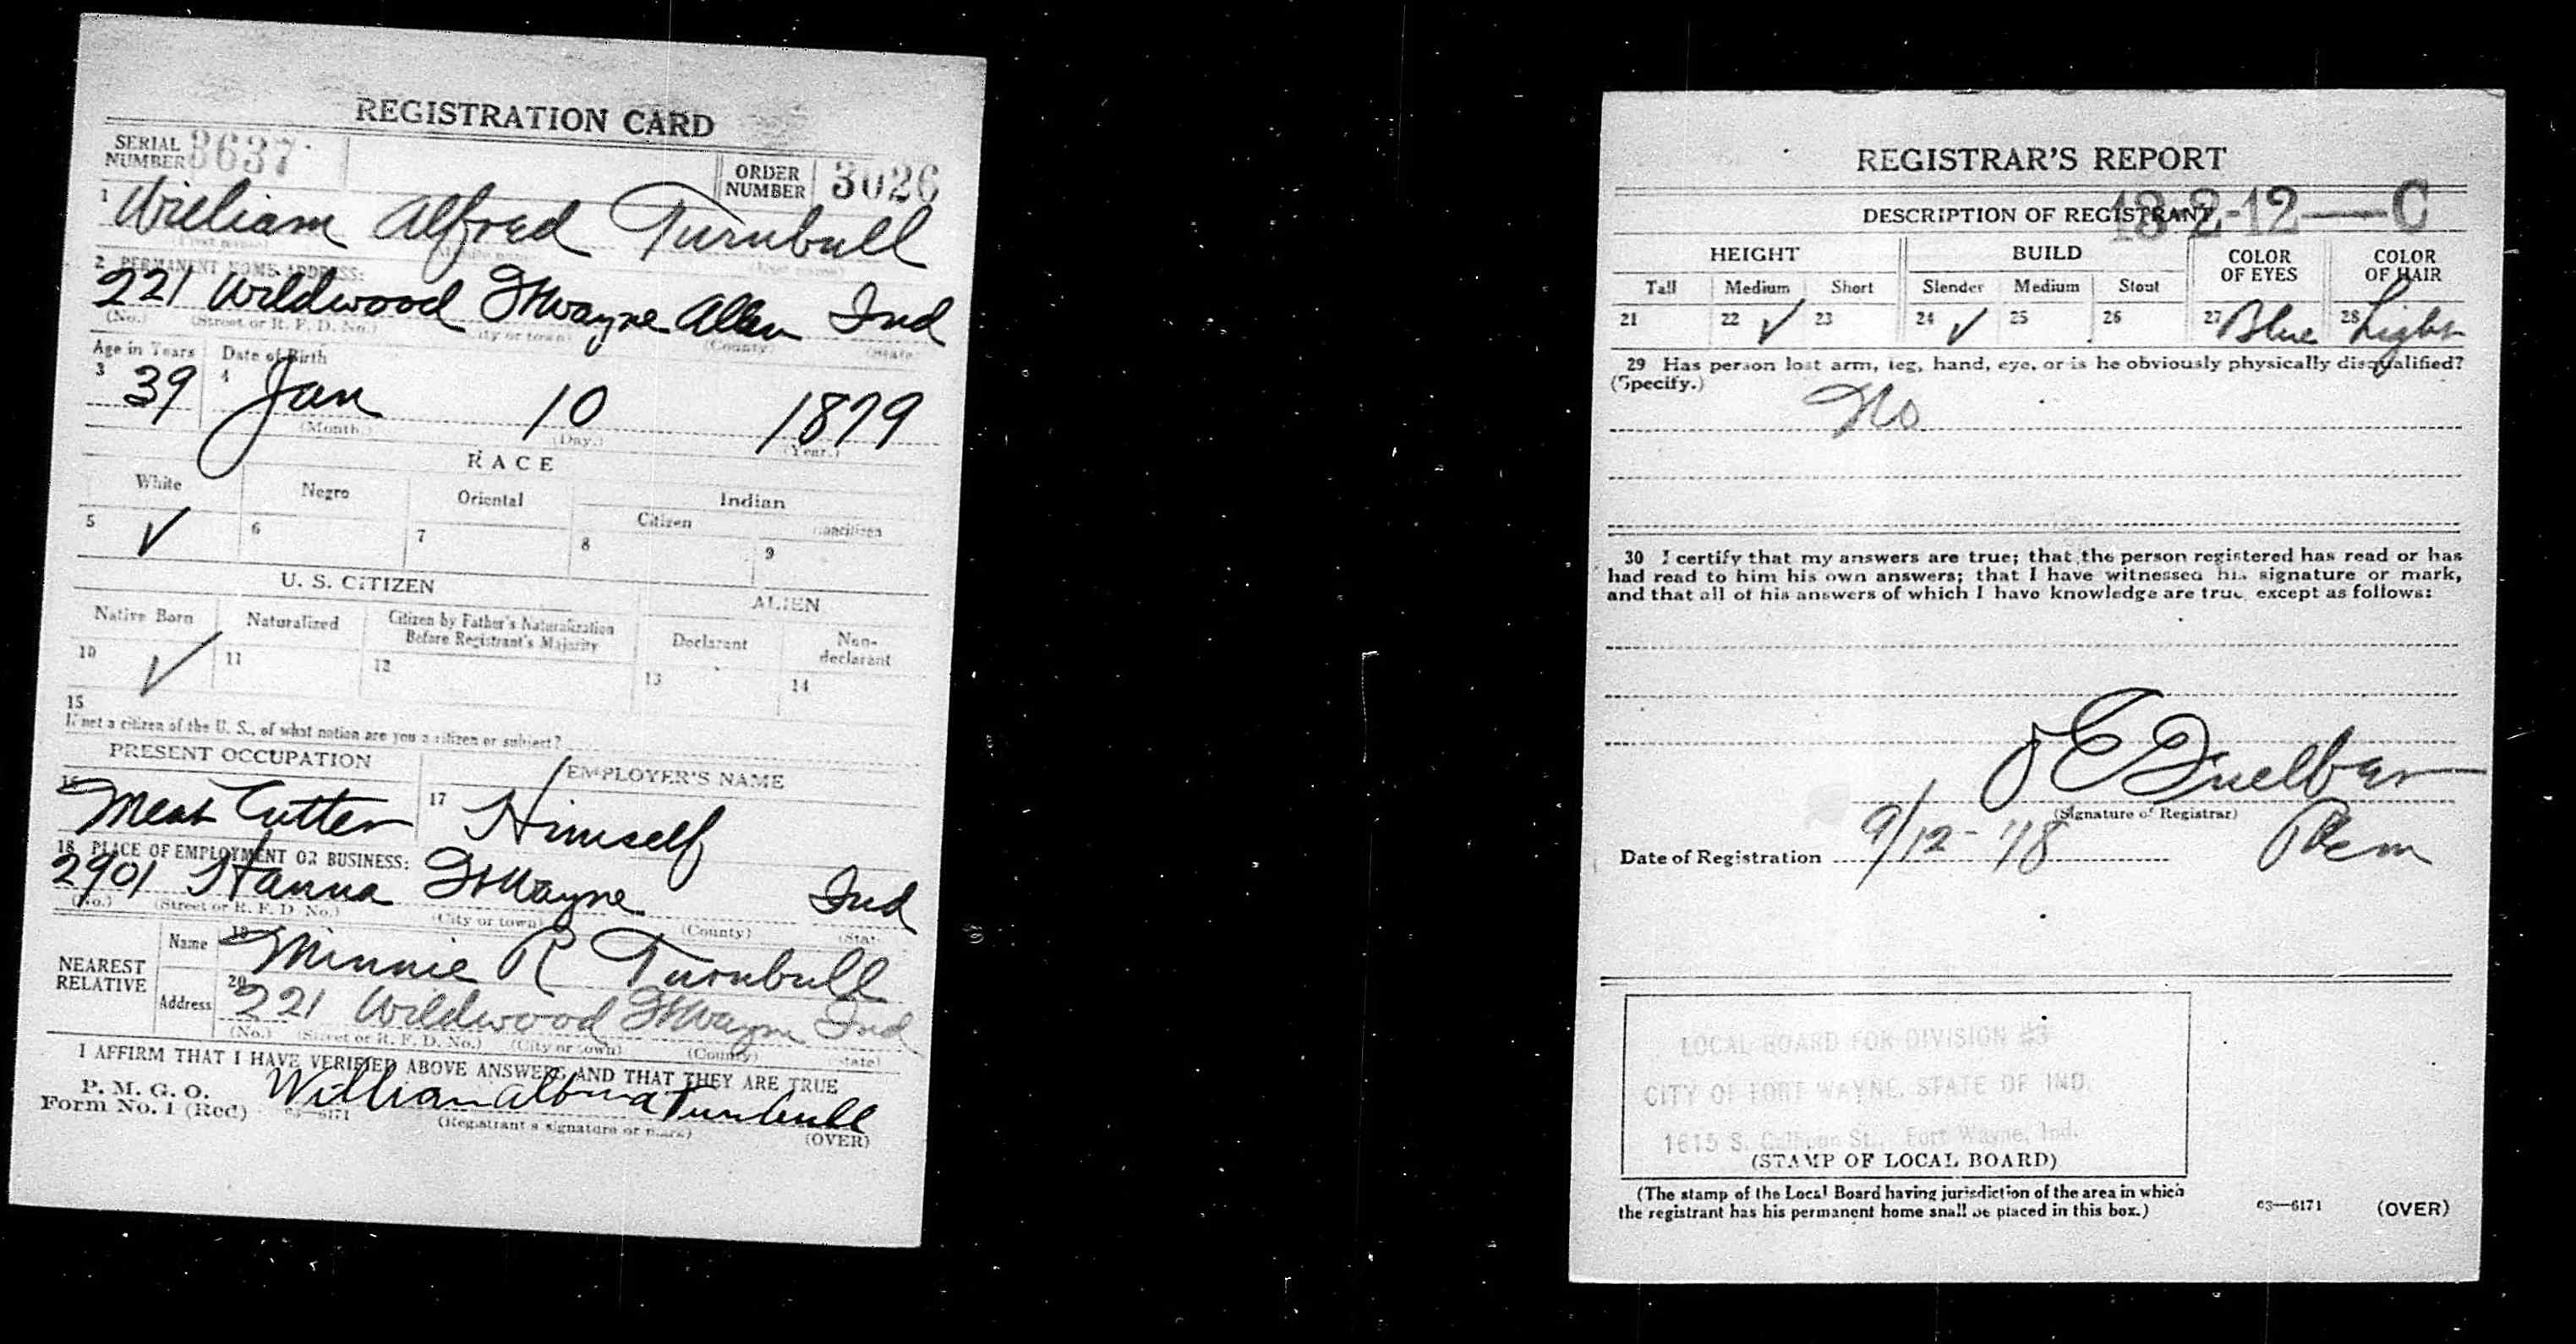 REGISTRATION CARD
SERIAL NUMBER 3637
ORDER NUMBER 3026
1 William Alfred Turnbull
(First name) (Middle name) (Last name)
2 PERMANENT HOME ADDRESS:
221 Wildwood Ft Wayne Allen Ind
(No.) (Street or R. F. D. No.) (City or town) (County) (State)
Age in Years Date of Birth
3 39 4 Jan 10 1879
(Month.) (Day.) (Year.)
RACE
White Negro Oriental Indian
Citizen Noncitizen
5 ✓ 6 7 8 9
U. S. CITIZEN ALIEN
Native Born Naturalized Citizen by Father's Naturalization Before Registrant's Majority Declarant Non-declarant
10 ✓ 11 12 13 14
15
If not a citizen of the U. S., of what nation are you a citizen or subject?
PRESENT OCCUPATION EMPLOYER'S NAME
16 Meat Cutter 17 Himself
18 PLACE OF EMPLOYMENT OR BUSINESS:
2901 Hanna Ft Wayne Ind
(No.) (Street or R. F. D. No.) (City or town) (County) (State)
NEAREST RELATIVE
Name 19 Minnie R Turnbull
Address 20 221 Wildwood Ft Wayne Ind
(No.) (Street or R. F. D. No.) (City or town) (County) (State)
I AFFIRM THAT I HAVE VERIFIED ABOVE ANSWERS AND THAT THEY ARE TRUE
P. M. G. O.
Form No. 1 (Red) 03—6171 William Turnbull
(Registrant's signature or mark) (OVER)
REGISTRAR'S REPORT
13-2-12—C
DESCRIPTION OF REGISTRANT
HEIGHT BUILD COLOR OF EYES COLOR OF HAIR
Tall Medium Short Slender Medium Stout
21 22 ✓ 23 24 ✓ 25 26 27 Blue 28 Light
29 Has person lost arm, leg, hand, eye, or is he obviously physically disqualified?
(Specify.)
No
30 I certify that my answers are true; that the person registered has read or has
had read to him his own answers; that I have witnessed his signature or mark,
and that all of his answers of which I have knowledge are true, except as follows:
(Signature of Registrar)
Date of Registration 9/12-'18
LOCAL BOARD FOR DIVISION #3
CITY OF FORT WAYNE, STATE OF IND.
1615 S. Calhoun St., Fort Wayne, Ind.
(STAMP OF LOCAL BOARD)
(The stamp of the Local Board having jurisdiction of the area in which
the registrant has his permanent home shall be placed in this box.)
03—6171 (OVER)